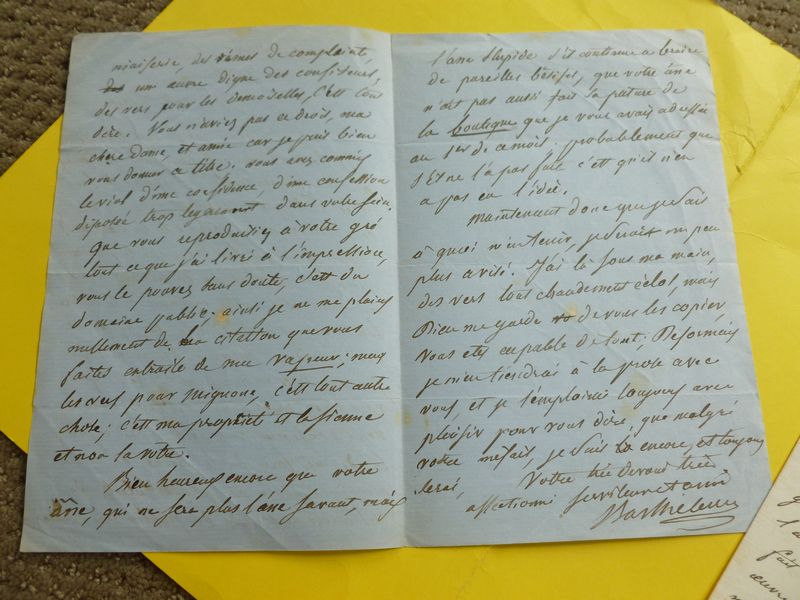 niaiserie, des rimes de complainte,
un œuvre digne des confiseurs,
des vers pour les demoiselles, C'est tout
dire. Vous n'aviez pas ce droit, ma
chere dame, et amie car je puis bien
vous donner ce titre. vous avez commis
le viol d'une confidence, d'une confession
déposée trop legerement dans votre sein.
Que vous reproduisiez à votre gré
tout ce que j'ai livré à l'impression,
vous le pouvez sans doute, c'est du
domaine public; ainsi je ne me plains
nullement de la citation que vous
faites extraite de ma vapeur; mais
les vers pour mignone, c'est tout autre
chose; c'est ma propriété et la sienne
et non la vôtre.
Bien heureux encore que votre
âne, qui ne sera plus l'âne savant, mais
l'âne stupide s'il continue a braire
de pareilles bêtises, que votre âne
n'ait pas aussi fait la pature de
la boutique que je vous avais adressée
au 1er de ce mois. probablement que
s'il ne l'a pas fait c'est qu'il n'en
a pas eu l'idée.
Maintenant donc que je sais
à quoi m'en tenir, je serai un peu
plus avisé. J'ai là sous ma main,
des vers tout chaudement éclos, mais
Dieu me garde de vous les copier
vous etes capable de tout; Desormais
je m'en tiendrai à la prose avec
vous, et je l'emploierai toujours avec
plaisir pour vous dire, que malgré
votre méfait, je suis encore, et toujours
serai, Votre très devoué très
affectionné serviteur et ami
Barthélemy